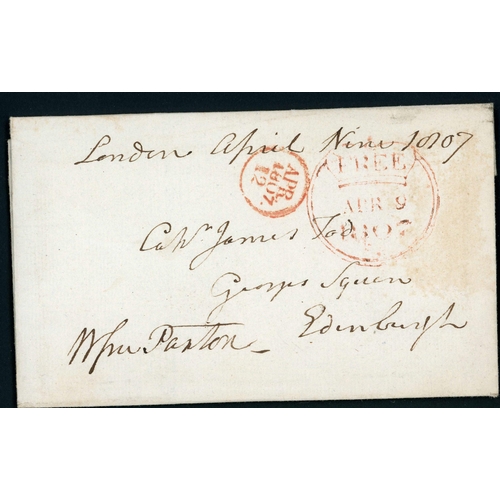 London April Nine 1807
APR
12
1807
FREE
APR 9
1807
Captn James Tod
Georges Square
Edinburgh
Wm Paxton